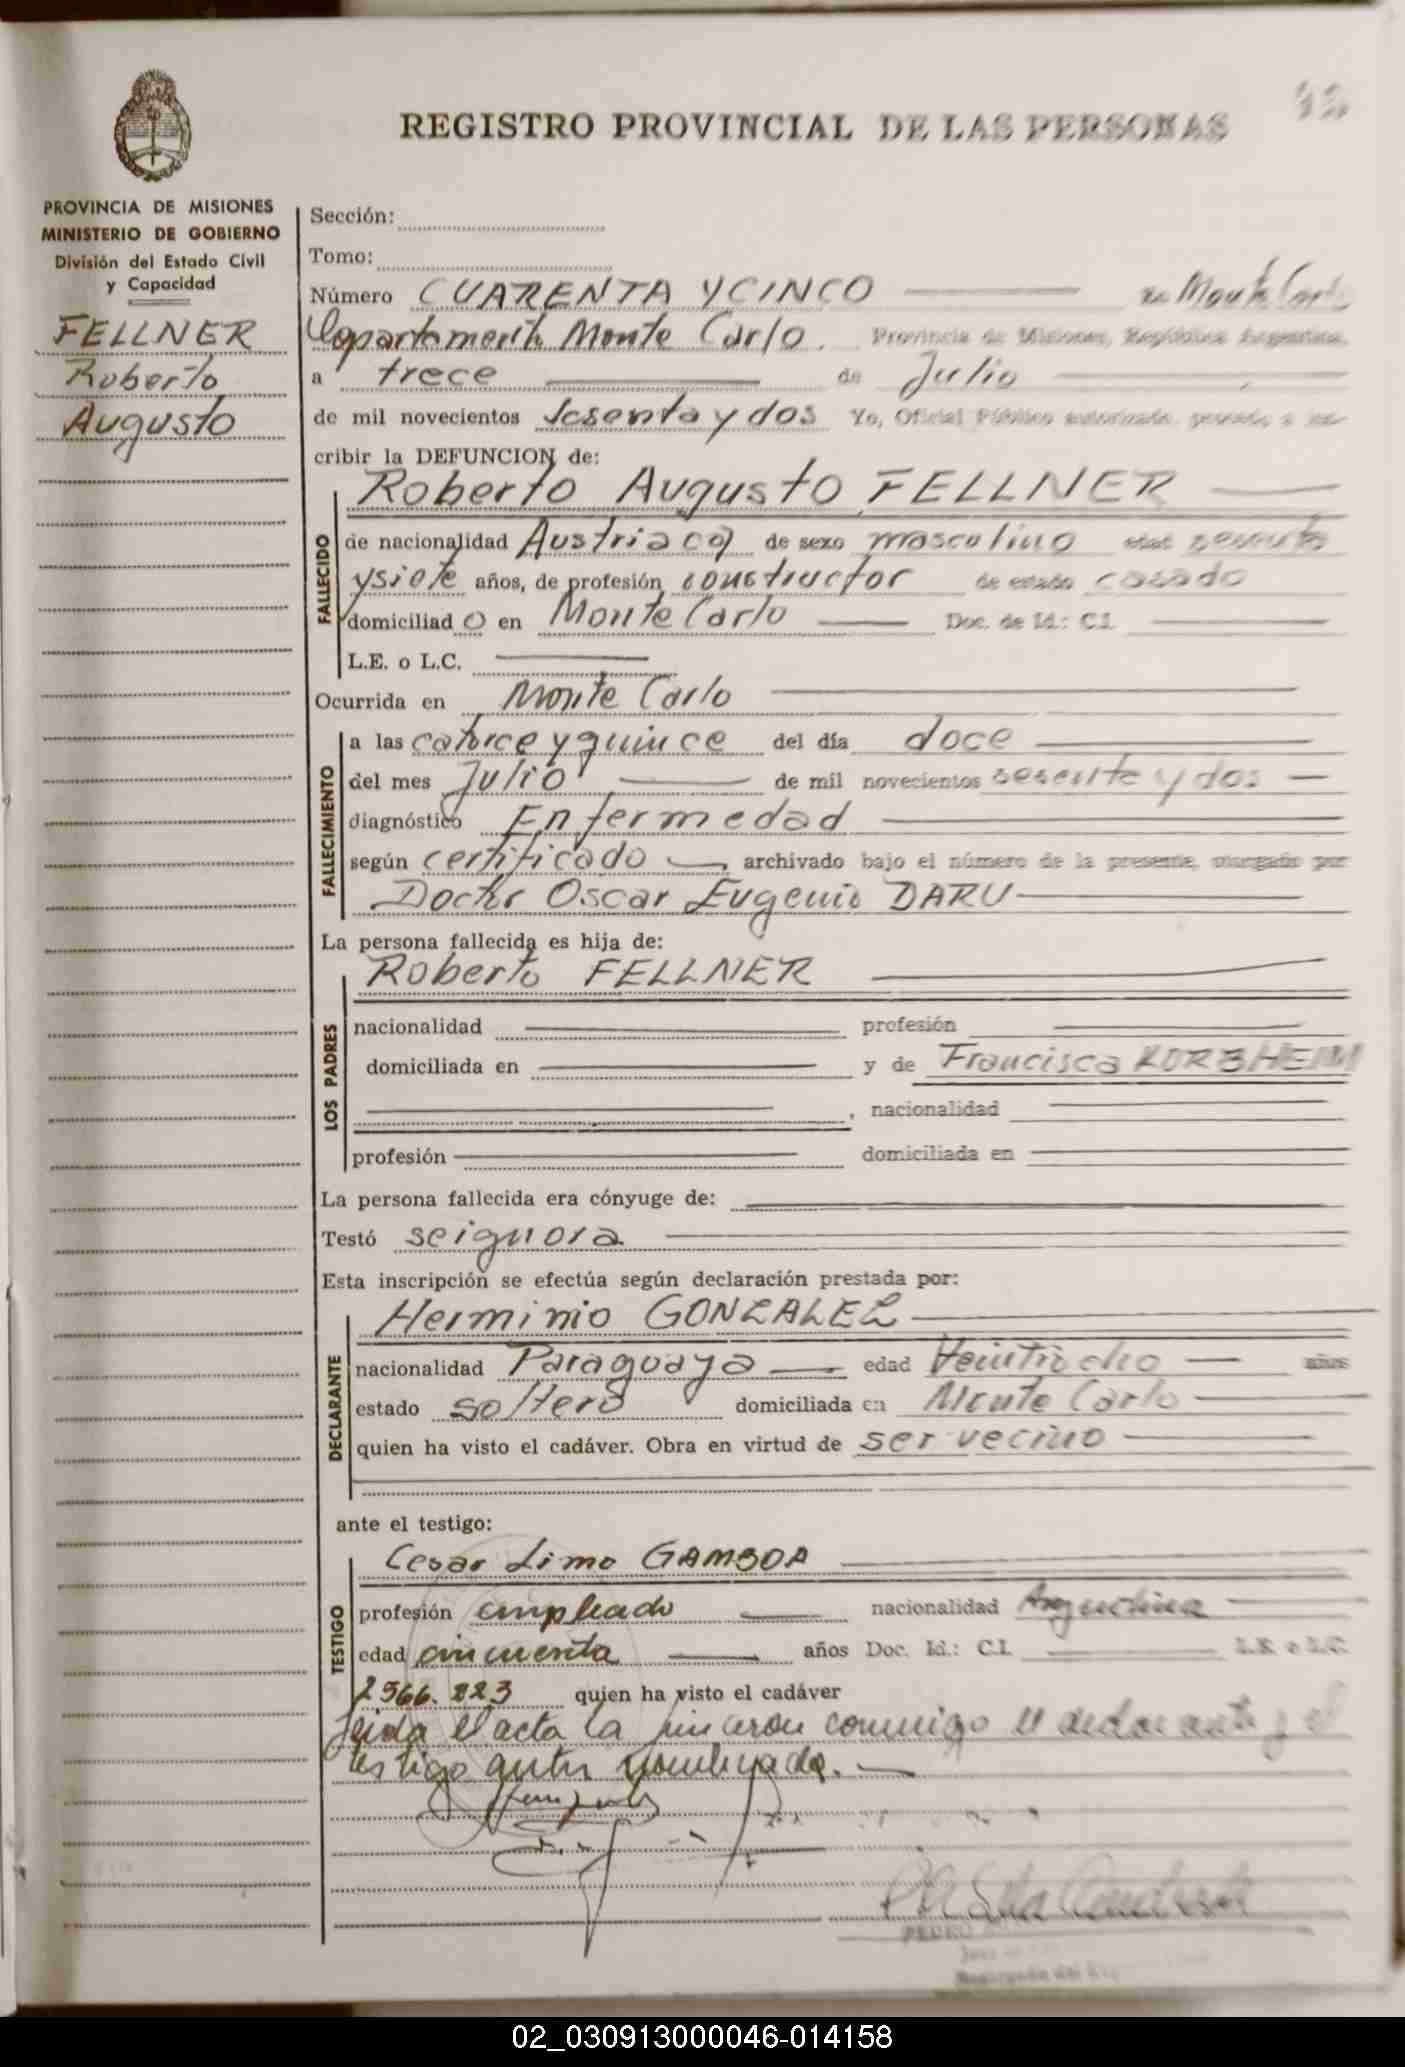 REGISTRO PROVINCIAL DE LAS PERSONAS
PROVINCIA DE MISIONES
MINISTERIO DE GOBIERNO
División del Estado Civil
y Capacidad
FELLNER
Roberto
Augusto
Sección:
Tomo:
Número CUARENTA Y CINCO en Monte Carlo
Departamento Monte Carlo. Provincia de Misiones, República Argentina,
a trece de Julio
de mil novecientos sesenta y dos Yo, Oficial Público autorizado, procedo a ins-
cribir la DEFUNCION de:
Roberto Augusto FELLNER
FALLECIDO
de nacionalidad Austriaco de sexo masculino edad sesenta
y siete años, de profesión constructor de estado casado
domiciliado en Monte Carlo Doc. de Id.: C.I.
L.E. o L.C.
Ocurrida en Monte Carlo
FALLECIMIENTO
a las catorce y quince del día doce
del mes Julio de mil novecientos sesenta y dos
diagnóstico Enfermedad
según certificado archivado bajo el número de la presente, otorgado por
Doctor Oscar Eugenio DARU
La persona fallecida es hija de:
Roberto FELLNER
LOS PADRES
nacionalidad profesión
domiciliada en y de Francisca KORBHEIM
, nacionalidad
profesión domiciliada en
La persona fallecida era cónyuge de:
Testó se ignora
Esta inscripción se efectúa según declaración prestada por:
Herminio GONZALEZ
DECLARANTE
nacionalidad Paraguaya edad Veintiocho años
estado soltero domiciliada en Monte Carlo
quien ha visto el cadáver. Obra en virtud de ser vecino
ante el testigo:
Cesar Limo GAMBOA
TESTIGO
profesión empleado nacionalidad Argentina
edad cincuenta años Doc. Id.: C.I. L.E. o L.C.
2566.223 quien ha visto el cadáver
Leida el acta la firmaron conmigo el declarante y el
testigo antes nombrado.
PEDRO
02_030913000046-014158